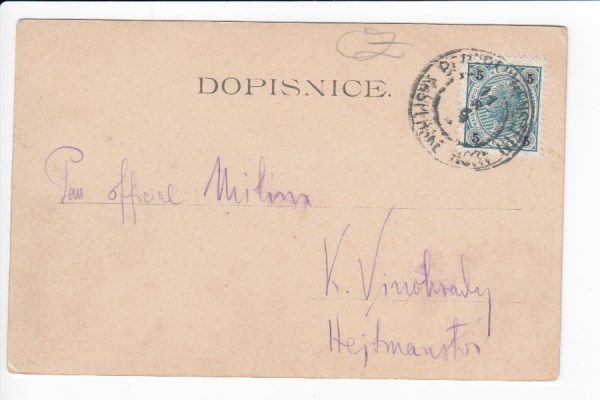 DOPISNICE.
5 5
5 5
Pan official Milina
K. Vinohrady
Hejtmanství